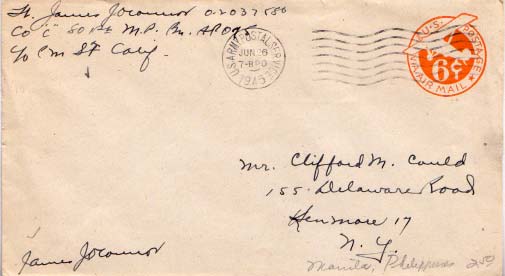 Lt. James J O'Connor O-2037580
Co "C" 801st M.P. Bn. APO 75
c/o P M SF Calif.
U.S. ARMY POSTAL SERVICE
JUN 26
7-30 PM
1945
U.S. POSTAGE
6¢
VIA AIR MAIL
Mr. Clifford M. Could
155 Delaware Road
Kenmore 17
N. Y.
James J O'Connor
Manila, Philippines 250